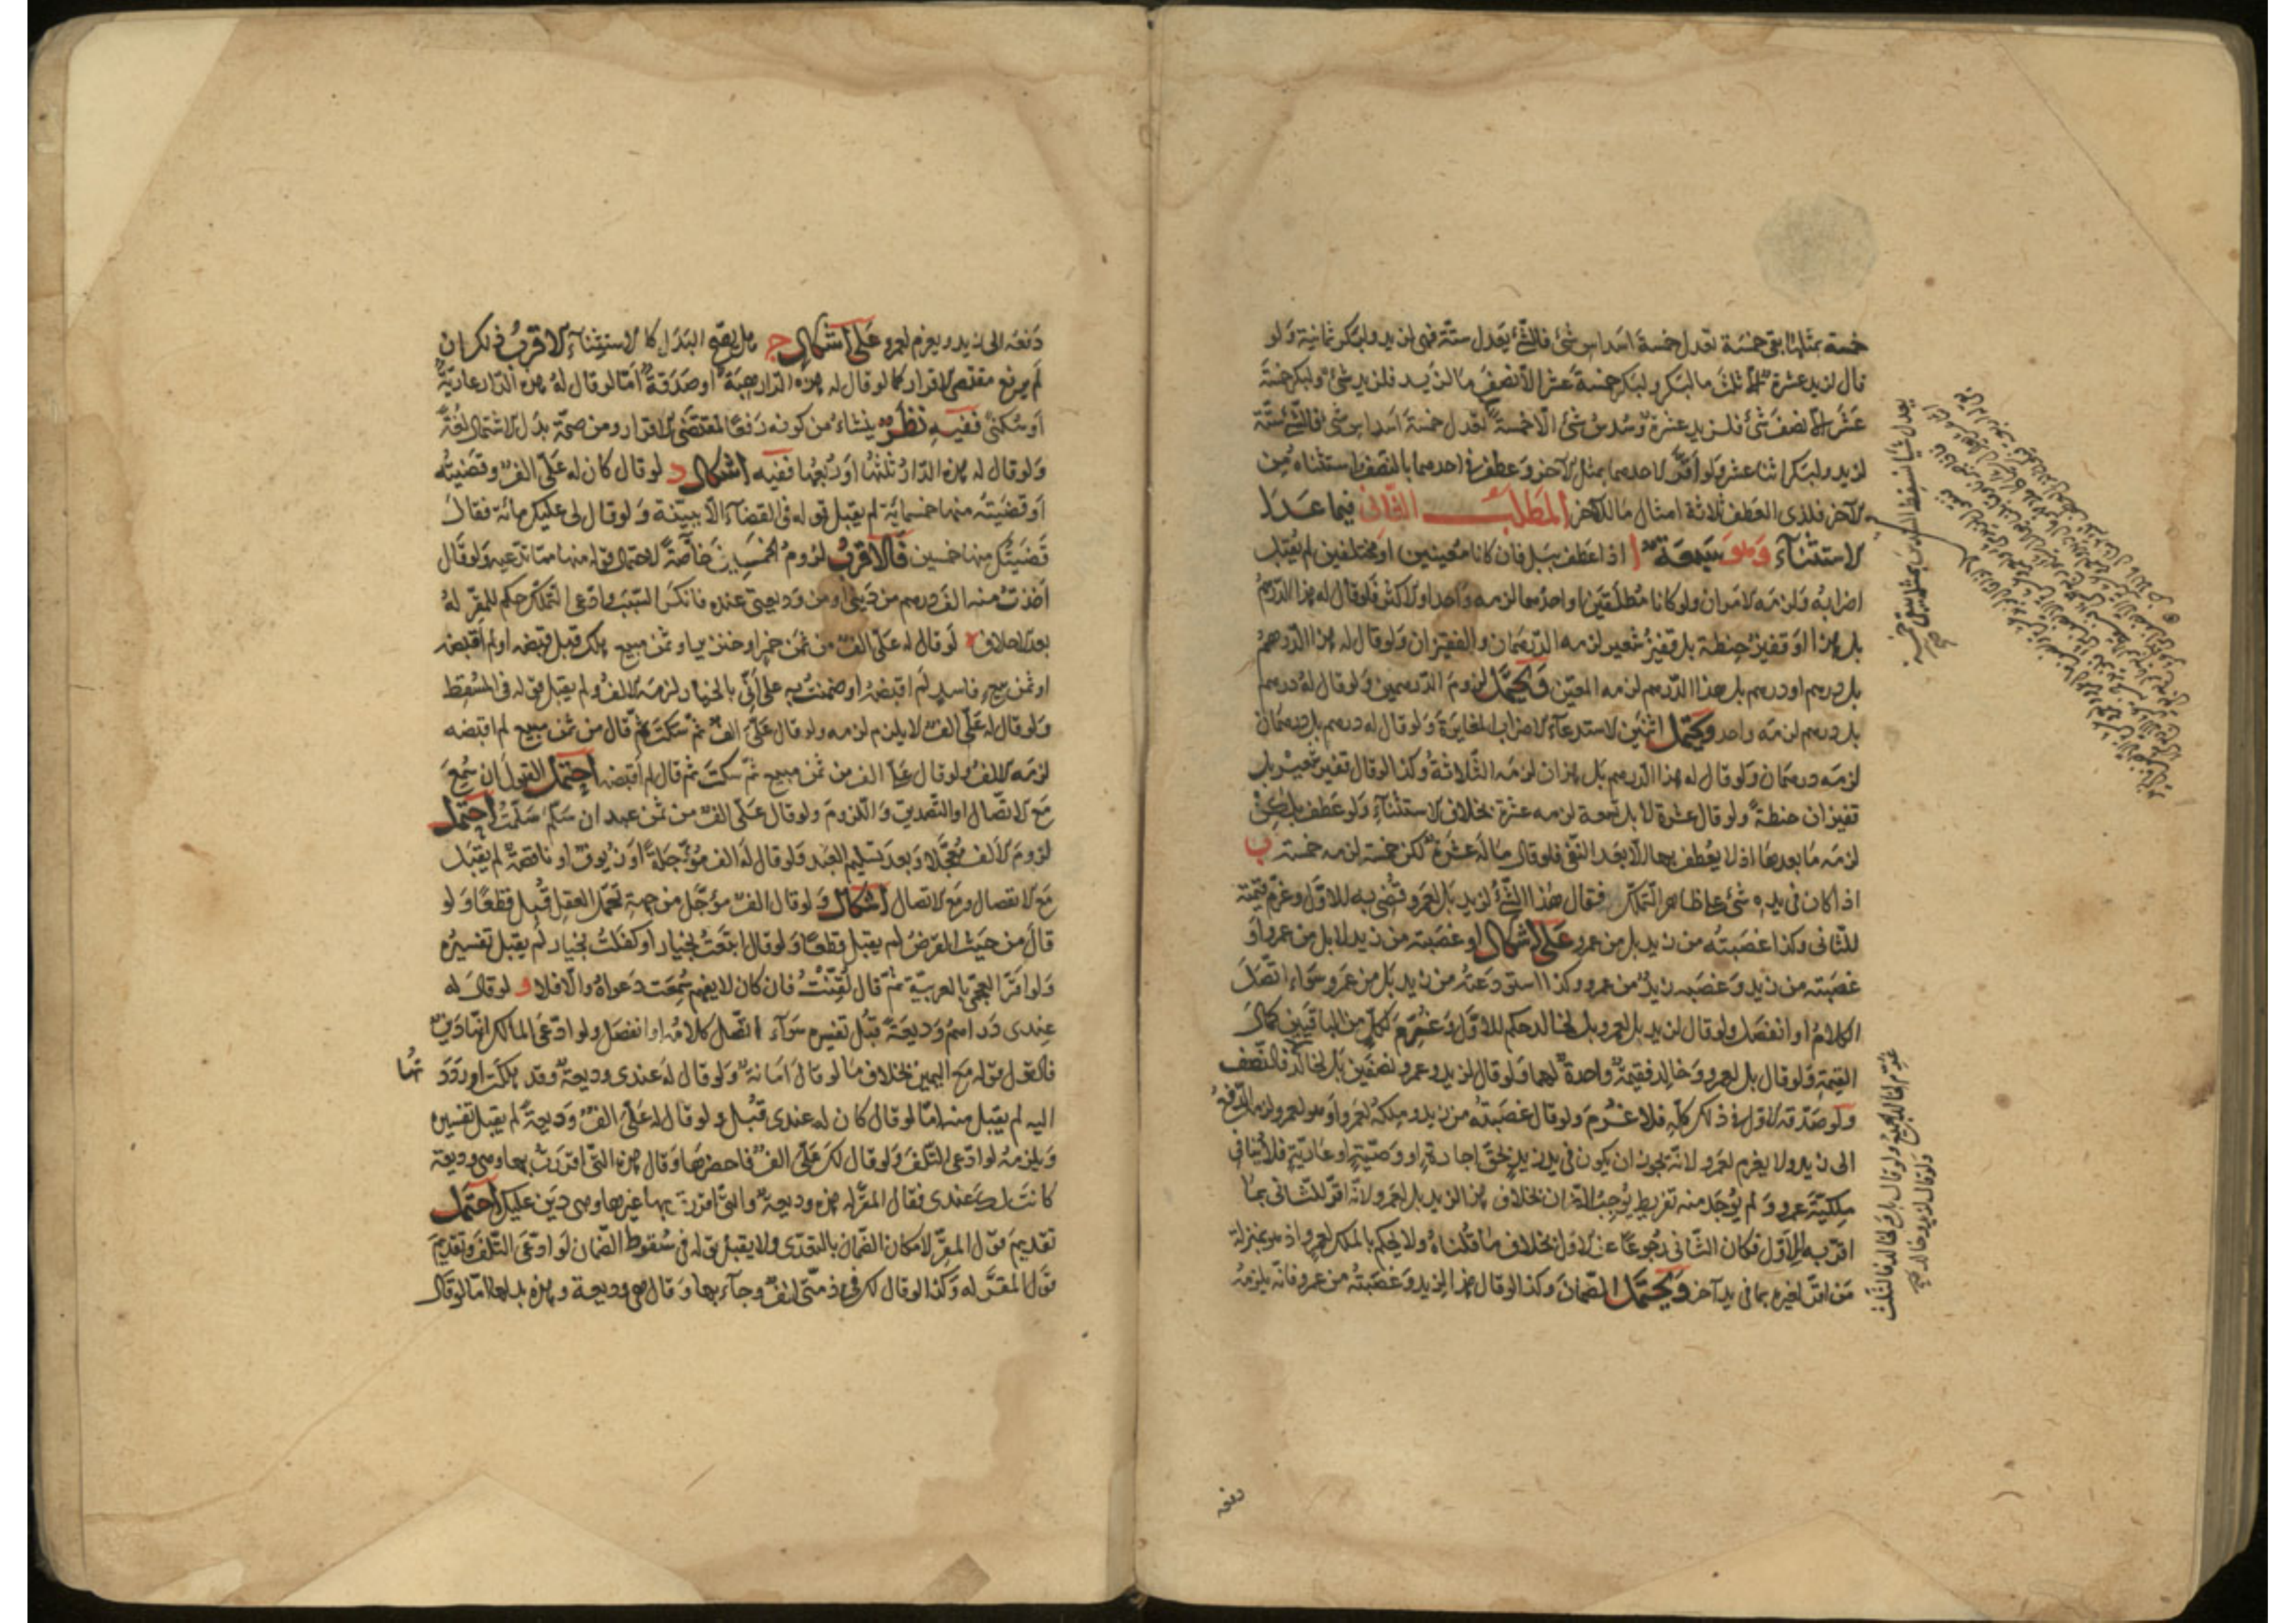 خمسة بمثلها بقى خمسة تعدل خمسة اسداس شئ فالشئ يعدل ستة فهى لزيد ولبكر ثمانية ولو
قال لزيد عشرة الا ثلث ما لبكر ولبكر خمسة عشر الا نصف ما لزيد فلزيد شئ ولبكر خمسة
عشر الا نصف شئ فلزيد عشرة وسدس شئ الا خمسة تعدل خمسة اسداس شئ فالشئ ستة
لزيد ولبكر اثنا عشر ولو اقر لاحدهما بمثل الآخر وعطف فى احدهما بالنصف واستثناه من
الآخر فلذى العطف ثلاثة امثال ما للآخر المطلب الثانى فيما عدا
الاستثناء وهو سبعة ا اذا عطف ببل فان كانا معينين او مختلفين لم يقبل
اضرابه ولزمه الامران ولو كانا مطلقين او احدهما لزمه واحد او الاكثر فلو قال له هذا الدرهم
بل هذا او قفيز حنطة بل قفيز شعير لزمه الدرهمان والقفيزان ولو قال له هذا الدرهم
بل درهم او درهم بل هذا الدرهم لزمه المعين ويحتمل لزوم الدرهمين ولو قال له درهم
بل درهم لزمه واحد ويحتمل اثنين لاستدعاء الاضراب المغايرة ولو قال له درهم بل درهمان
لزمه درهمان ولو قال له هذا الدرهم بل هذان لزمه الثلاثة وكذا لو قال قفيز شعير بل
قفيزان حنطة ولو قال عشرة لا بل تسعة لزمه عشرة بخلاف الاستثناء ولو عطف بلكن
لزمه ما بعدها اذ لا يعطف بها الا بعد النفى فلو قال ما له عشرة لكن خمسة لزمه خمسة ب
اذا كان فى يده شئ على ظاهر التملك فقال هذا الشئ لزيد بل لعمرو قضى به للاول وغرم قيمته
للثانى وكذا غصبته من زيد بل من عمرو على اشكال او غصبته من زيد لا بل من عمرو او
غصبته من زيد وغصبه زيد من عمرو وكذا استودعته من زيد بل من عمرو سواء اتصل
الكلام او انفصل ولو قال لزيد بل لعمرو بل لخالد حكم للاول وغرم لكل من الباقيين كمال
القيمة ولو قال بل لعمرو وخالد فقيمة واحدة لهما ولو قال لزيد وعمرو نصفين بل لخالد فالنصف
ولو صدقه الاول فى ذلك كله فلا غرم ولو قال غصبته من زيد وملكه لعمرو او وهو لعمرو لزمه الدفع
الى زيد ولا يغرم لعمرو لانه يجوز ان يكون فى يد زيد بحق اجارة او وصية او عارية فلا ينافى
ملكية عمرو ولم يوجد منه تفريط يوجب الضمان بخلاف هذا لزيد بل لعمرو لانه اقر للثانى بما
اقر به للاول فكان الثانى رجوعا عن الاول بخلاف ما قلناه ولا يحكم بالملك لعمرو اذ هو بمنزلة
من اقر لغيره بما فى يد آخر ويحتمل الضمان وكذا لو قال هذا لزيد وغصبته من عمرو فانه يلزمه
يعدل شيا نسقط السدس بمثله يبقى خمسة
غرم لخالد الجميع ولو قال بل ولخالد فالثلث
ولو قال لزيد وخالد
دفعه
دفعه الى زيد ويغرم لعمرو على اشكال ج هل يصح البدل كالاستثناء الاقرب ذلك ان
لم يرفع مقتضى الاقرار كما لو قال له هذه الدار هبة او صدقة اما لو قال له هذه الدار عارية
او سكنى ففيه نظر ينشاء من كونه رفعا لمقتضى الاقرار ومن صحة بدل الاشتمال لغة
ولو قال له هذه الدار ثلثها او ربعها ففيه اشكال د لو قال كان له على الف وقضيته
او قضيته منها خمسمائة لم يقبل قوله فى القضاء الا ببينة ولو قال لى عليك مائة فقال
قضيتك منها خمسين فالاقرب لزوم الخمسين خاصة لاحتمال قوله منها مما تدعيه ولو قال
اخذت منه الف درهم من دينى او من وديعتى عنده فانكر السبب وادعى التملك حكم للمقر له
بعد الاحلاف ه لو قال له على الف من ثمن خمر او خنزير او ثمن مبيع هلك قبل قبضه او لم اقبضه
او ثمن مبيع فاسد لم اقبضه او ضمنت به على انى بالخيار لزمه الالف ولم يقبل قوله فى المسقط
ولو قال له على الف لا يلزم لزمه ولو قال على الف ثم سكت ثم قال من ثمن مبيع لم اقبضه
لزمه الالف ولو قال على الف من ثمن مبيع ثم سكت ثم قال لم اقبضه احتمل القبول ان سمع
مع الاتصال او التصديق واللزوم ولو قال على الف من ثمن عبد ان سلم سلمت احتمل
لزوم الالف معجلا وبعد تسليم العبد ولو قال له الف مؤجلة او زيوف او ناقصة لم يقبل
مع الانفصال ومع الاتصال اشكال ولو قال الف مؤجل من جهة تحمل العقل قبل قطعا ولو
قال من حيث القرض لم يقبل قطعا ولو قال ابتعت بخيار او كفلت بخيار لم يقبل تفسيره
ولو اقر العجمى بالعربية ثم قال لقنت فان كان لا يفهم سمعت دعواه والا فلا و لو قال له
عندى دراهم وديعة قبل تفسيره سواء اتصل كلامه او انفصل ولو ادعى المالك انها دين
فالقول قوله مع اليمين بخلاف ما لو قال امانة ولو قال له عندى وديعة وقد هلكت او رددتها
اليه لم يقبل منه اما لو قال كان له عندى قبل ولو قال له على الف وديعة لم يقبل تفسيره
ويلزمه لو ادعى التلف ولو قال لك على الف فاحضرها وقال هذه التى اقررت بها وهى وديعة
كانت لك عندى فقال المقر له هذه وديعة والتى اقررت بها غيرها وهى دين عليك احتمل
تقديم قول المقر لامكان الضمان بالتعدى ولا يقبل قوله فى سقوط الضمان لو ادعى التلف وتقديم
قول المقر له وكذا لو قال لك فى ذمتى الف وجاء بها وقال هى وديعة وهذه بدلها اما لو قال